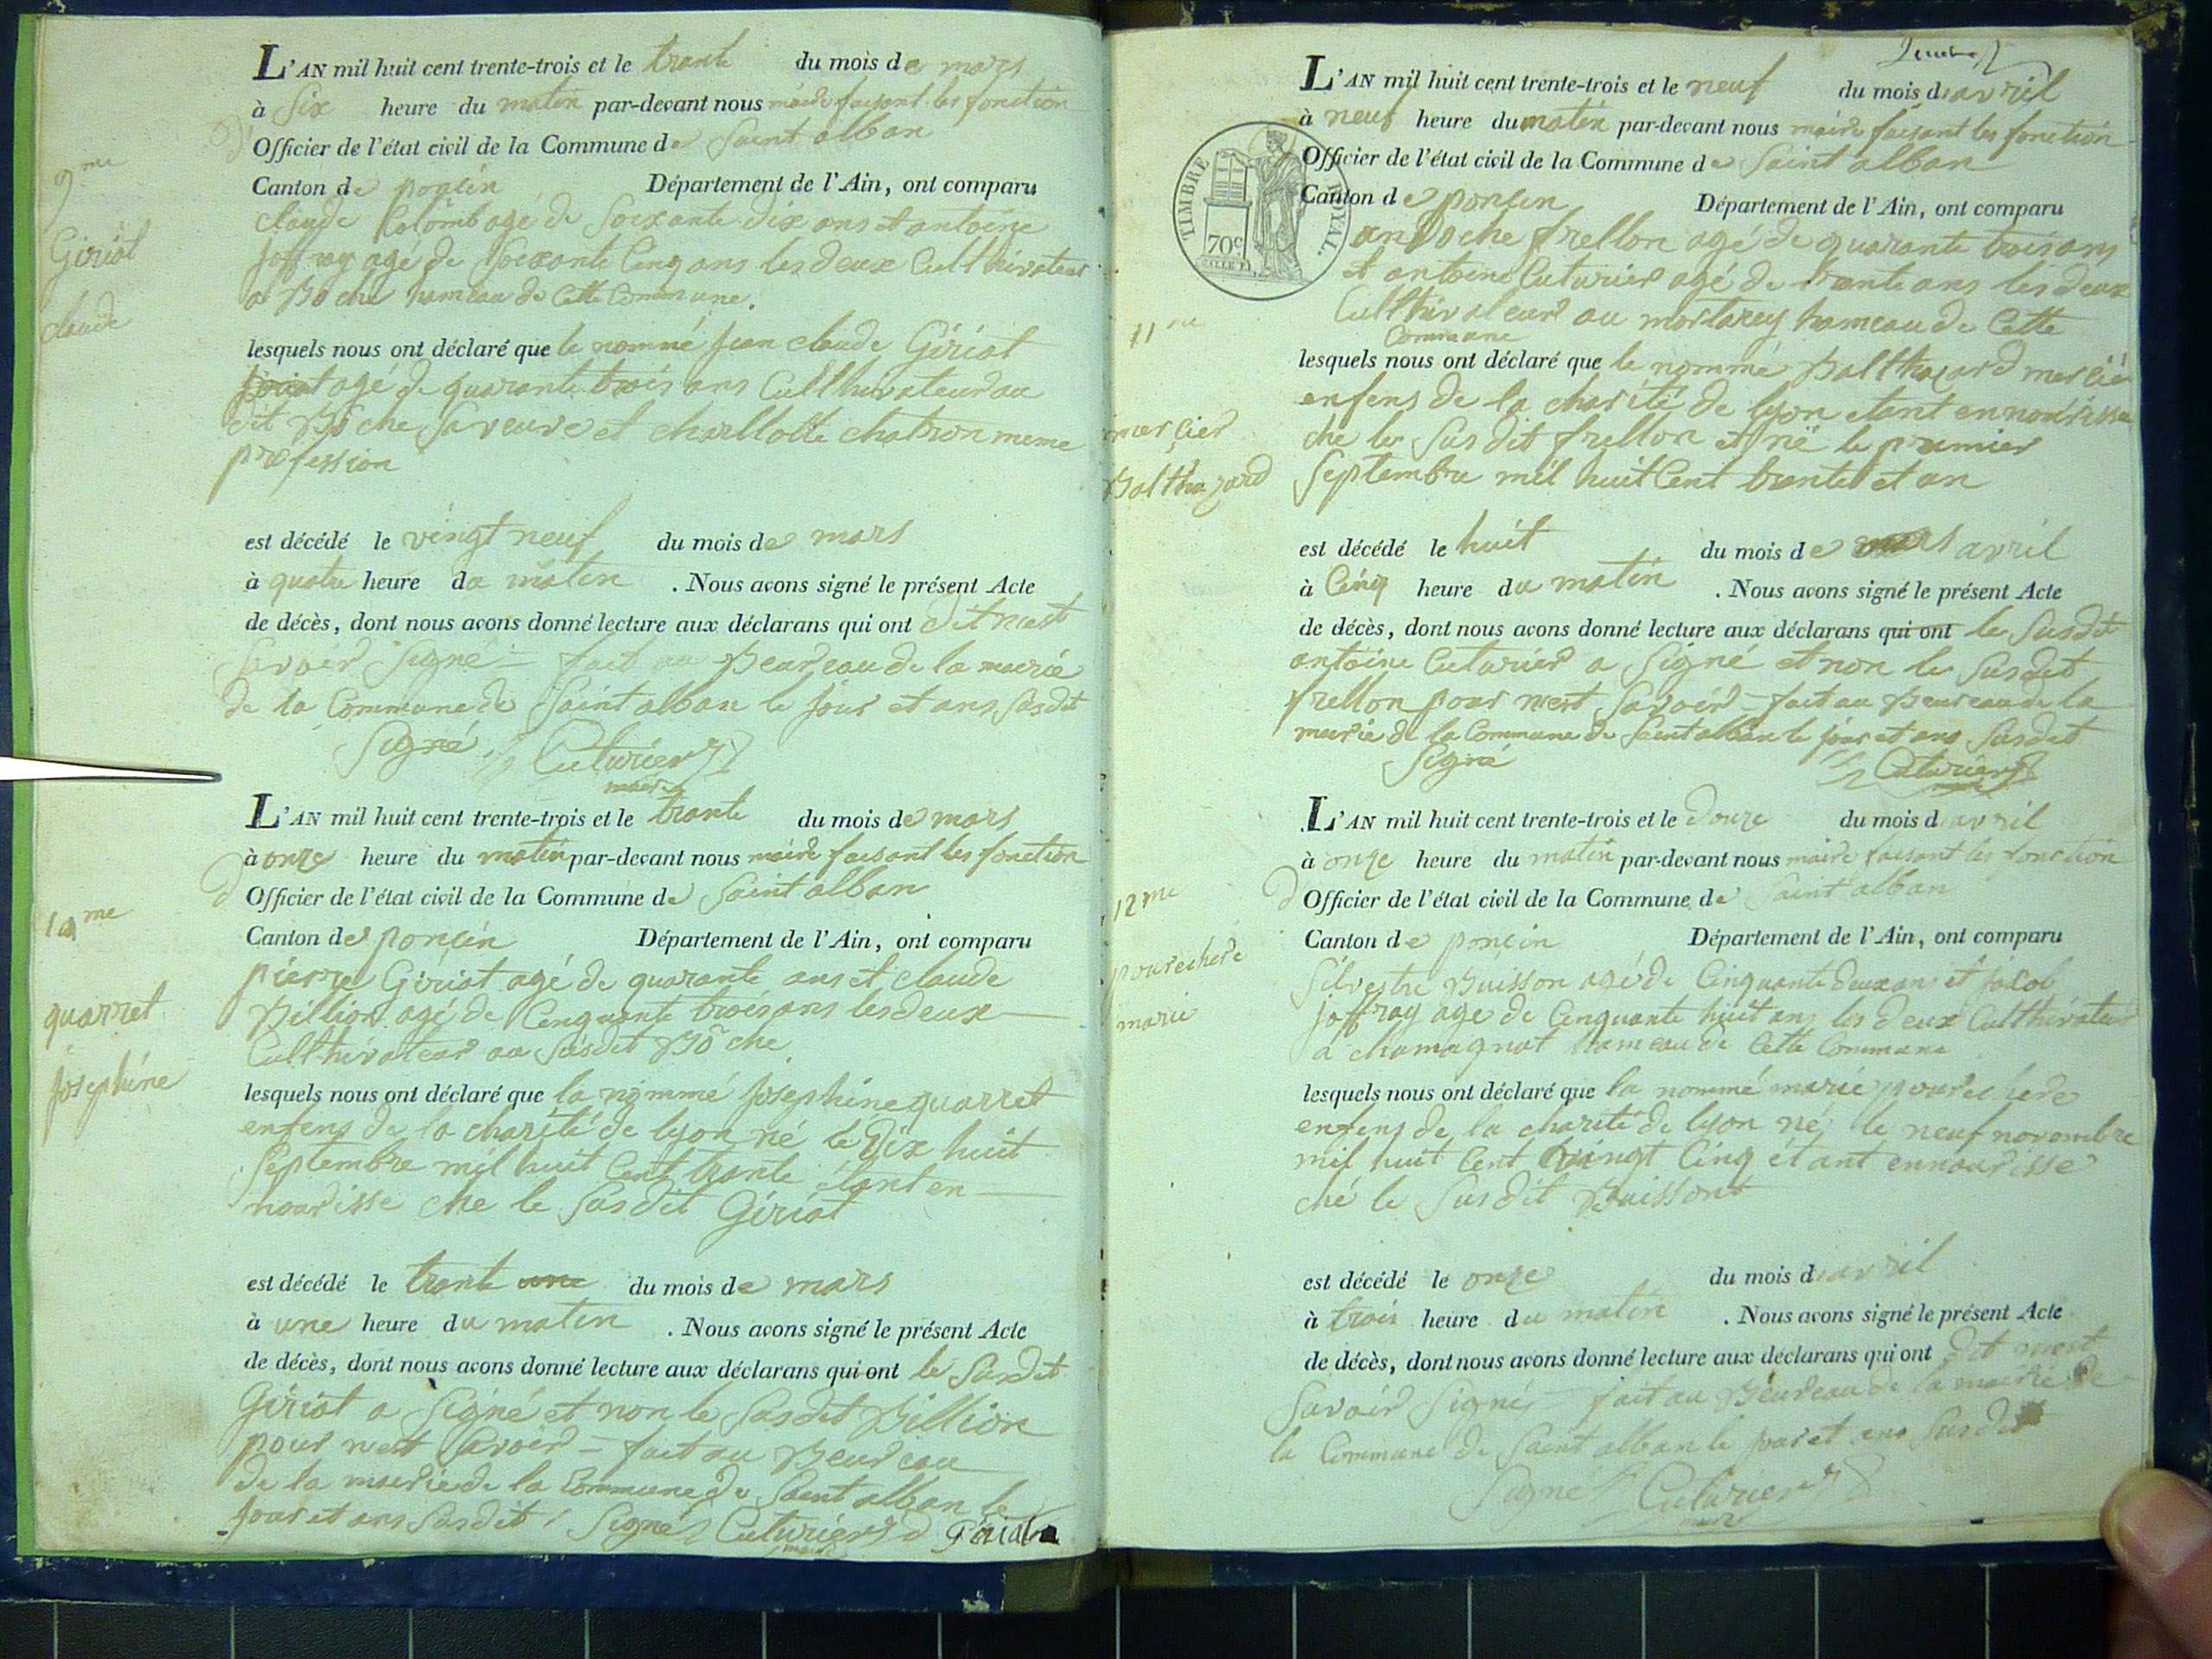 L'AN mil huit cent trente-trois et le trante du mois de mars
à Six heure du matin par-devant nous maire faisant les fonction
d'
Officier de l'état civil de la Commune de Saint alban
Canton de poncin Département de l'Ain, ont comparu
claude Colomb agé de Soixante dix ans et antoine
joffray agé de Soixante Cinq ans les deux Cultthivateur
a Bôche hameau de Cette Commune.
lesquels nous ont déclaré que le nommé jean claude Giriat
agé de quarante trois ans Cultthivateur au
dit Bôche Saveuve et charllotte chatron meme
profession
est décédé le vingt neuf du mois de mars
à quatre heure du matin . Nous avons signé le présent Acte
de décès, dont nous avons donné lecture aux déclarans qui ont dit nest
Savoir Signé = fait au Beureau de la mairie
de la Commune de Saint alban le jour et ans Susdit
Signé Cuturier
maire
9me
Giriat
claude
L'AN mil huit cent trente-trois et le trante du mois de mars
à onze heure du matin par-devant nous maire faisant les fonction
d'
Officier de l'état civil de la Commune de Saint alban
Canton de poncin Département de l'Ain, ont comparu
pierre Giriat agé de quarante ans et claude
Billion agé de Cinquante trois ans les deux
Cultthivateur au Susdit Bôche
lesquels nous ont déclaré que la nommé josephine quarret
enfens de la charité de lyon né le dix huit
Septembre mil huit Cent trante étant en
nourisse che le Susdit Giriat
est décédé le trante une du mois de mars
à une heure du matin . Nous avons signé le présent Acte
de décès, dont nous avons donné lecture aux déclarans qui ont le Susdit
Giriat a Signé et non le Susdit Billion
pour nest Savoir = fait au Beureau
de la mairie de la Commune de Saint alban le
jour et ans Susdit / Signé Cuturier Giriat
maire
10me
quarret
josephine
L'AN mil huit cent trente-trois et le neuf du mois d'avril
à neuf heure du matin par-devant nous maire faisant les fonction
Officier de l'état civil de la Commune de Saint alban
Canton de poncin Département de l'Ain, ont comparu
TIMBRE ROYAL.
70c
andoche frellon agé de quarante trois ans
et antoine Cuturier agé de trante ans les deux
Cultthivateur au mortarey hameau de Cette
Commune
lesquels nous ont déclaré que le nommé Baltthazard mercier
enfens de la charité de lyon etant en nourisse
che le Susdit frellon et né le premier
Septembre mil huit Cent trante et un
est décédé le huit du mois de mars avril
à Cinq heure du matin . Nous avons signé le présent Acte
de décès, dont nous avons donné lecture aux déclarans qui ont le Susdit
antoine Cuturier a Signé et non le Susdit
frellon pour nest Savoir = fait au Beureau de la
mairie de la Commune de Saint alban le jour et ans Susdit
Signé Cuturier
11me
mercier
Baltthazard
L'AN mil huit cent trente-trois et le douze du mois d'avril
à onze heure du matin par-devant nous maire faisant les fonction
d'
Officier de l'état civil de la Commune de Saint alban
Canton de poncin Département de l'Ain, ont comparu
Silvestre Buisson agé de Cinquante deux an et jacob
joffray age de Cinquante huit ans les deux Cultthivateur
a chamagnat hameau de Cette Commune
lesquels nous ont déclaré que la nommé marie pourechere
enfens de la charité de lyon né le neuf novombre
mil huit Cent vingt Cinq étant en nourisse
ché le Susdit Buisson
est décédé le onze du mois d'avril
à trois heure du matin . Nous avons signé le présent Acte
de décès, dont nous avons donné lecture aux déclarans qui ont dit nest
Savoir Signé = fait au Beureau de la mairie de
la Commune de Saint alban le jour et ans Susdit
Signé Cuturier
maire
12me
pourechere
marie